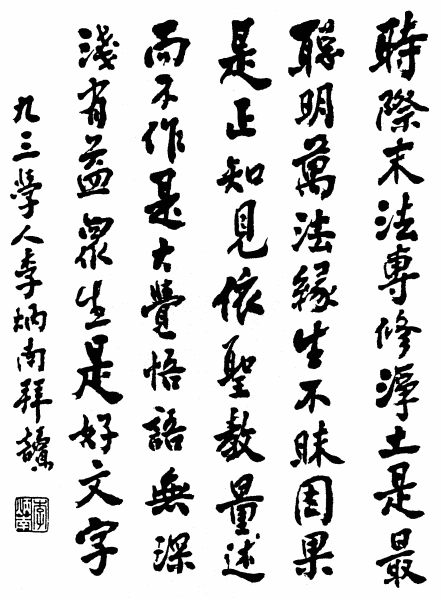 時際末法專修淨土是最
聰明萬法緣生不昧因果
是正知見依聖教量述
而不作是大覺悟語無深
淺有益眾生是好文字
九三學人李炳南拜讚
李炳南